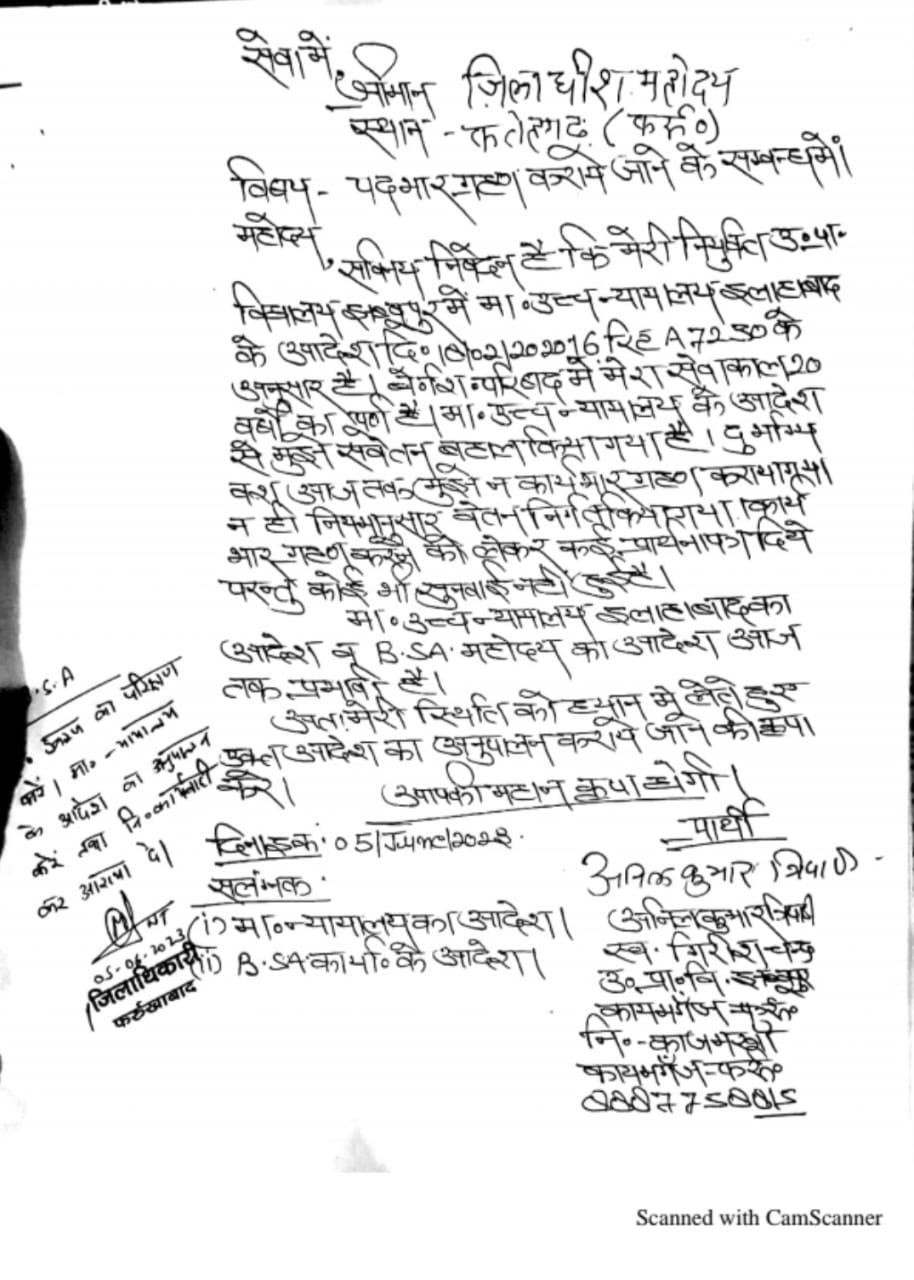 सेवा में,
श्रीमान जिलाधीश महोदय
स्थान - फतेहगढ़ (फर्रु०)
विषय - पदभार ग्रहण कराये जाने के सम्बन्ध में।
महोदय,
सविनय निवेदन है कि मेरी नियुक्ति उ.पा.
विद्यालय में मा० उच्च न्यायालय इलाहाबाद
के आदेश दि० A 7250 के
अनुसार है। परिषद में मेरा सेवाकाल 20
वर्षो का पूर्ण है। मा० उच्च न्यायालय के आदेश
से मुझे सवेतन बहाल किया गया है। दुर्भाग्य
वश आज तक मुझे न कार्यभार ग्रहण कराया गया
न ही नियमानुसार वेतन निर्गत किया गया। कार्य
भार ग्रहण करने को लेकर कई प्रार्थना पत्र दिये
परन्तु कोई भी सुनवाई नही हुई है।
मा० उच्च न्यायालय इलाहाबाद का
आदेश व B.S.A. महोदय का आदेश आज
तक प्रभावी है।
अतः मेरी स्थिति को ध्यान मे लेते हुए
उक्त आदेश का अनुपालन कराये जाने की कृपा
करे।
आपकी महान कृपा होगी।
प्रार्थी
दिनाङ्क: 05/June/2023
सलंग्नक:
(i) मा० न्यायालय का आदेश।
(ii) B.S.A कार्या० के आदेश।
अनिल कुमार त्रिपाठी
(अनिल कुमार त्रिपाठी)
स्व० गिरीश चन्द्र
उ० प्रा० वि०
कायमगंज फर्रु०
नि०-
कायमगंज-फर्रु०
.S.A
का परिक्षण
करें। मा० न्यायालय
के आदेश का अनुपालन
करें तथा नि०
कर आख्या दें।
05-06-2023
जिलाधिकारी
फर्रुखाबाद
Scanned with CamScanner